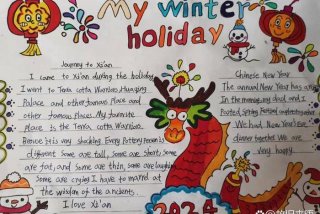 My winter
holiday
Journey to Xi'an
I came to Xi'an during the holiday
I went to Terra cotta Warriors Huaqing
Palace and other famous Place and
other famous Places. My favourite
place is the Terra cotta Warriors.
Because it is very shocking Every Pottery Person is
different Some are tall, some are short, some
are fat, and some are thin, some are laughing
Some are crying I have to marvel at
the wisdom of the ancients.
I love Xi'an
Chinese New Year
The annual New Year has
In the morning dad and I
Posted Spring Festival couplets together
We had New Year's
dinner together We are
very happy.
2024